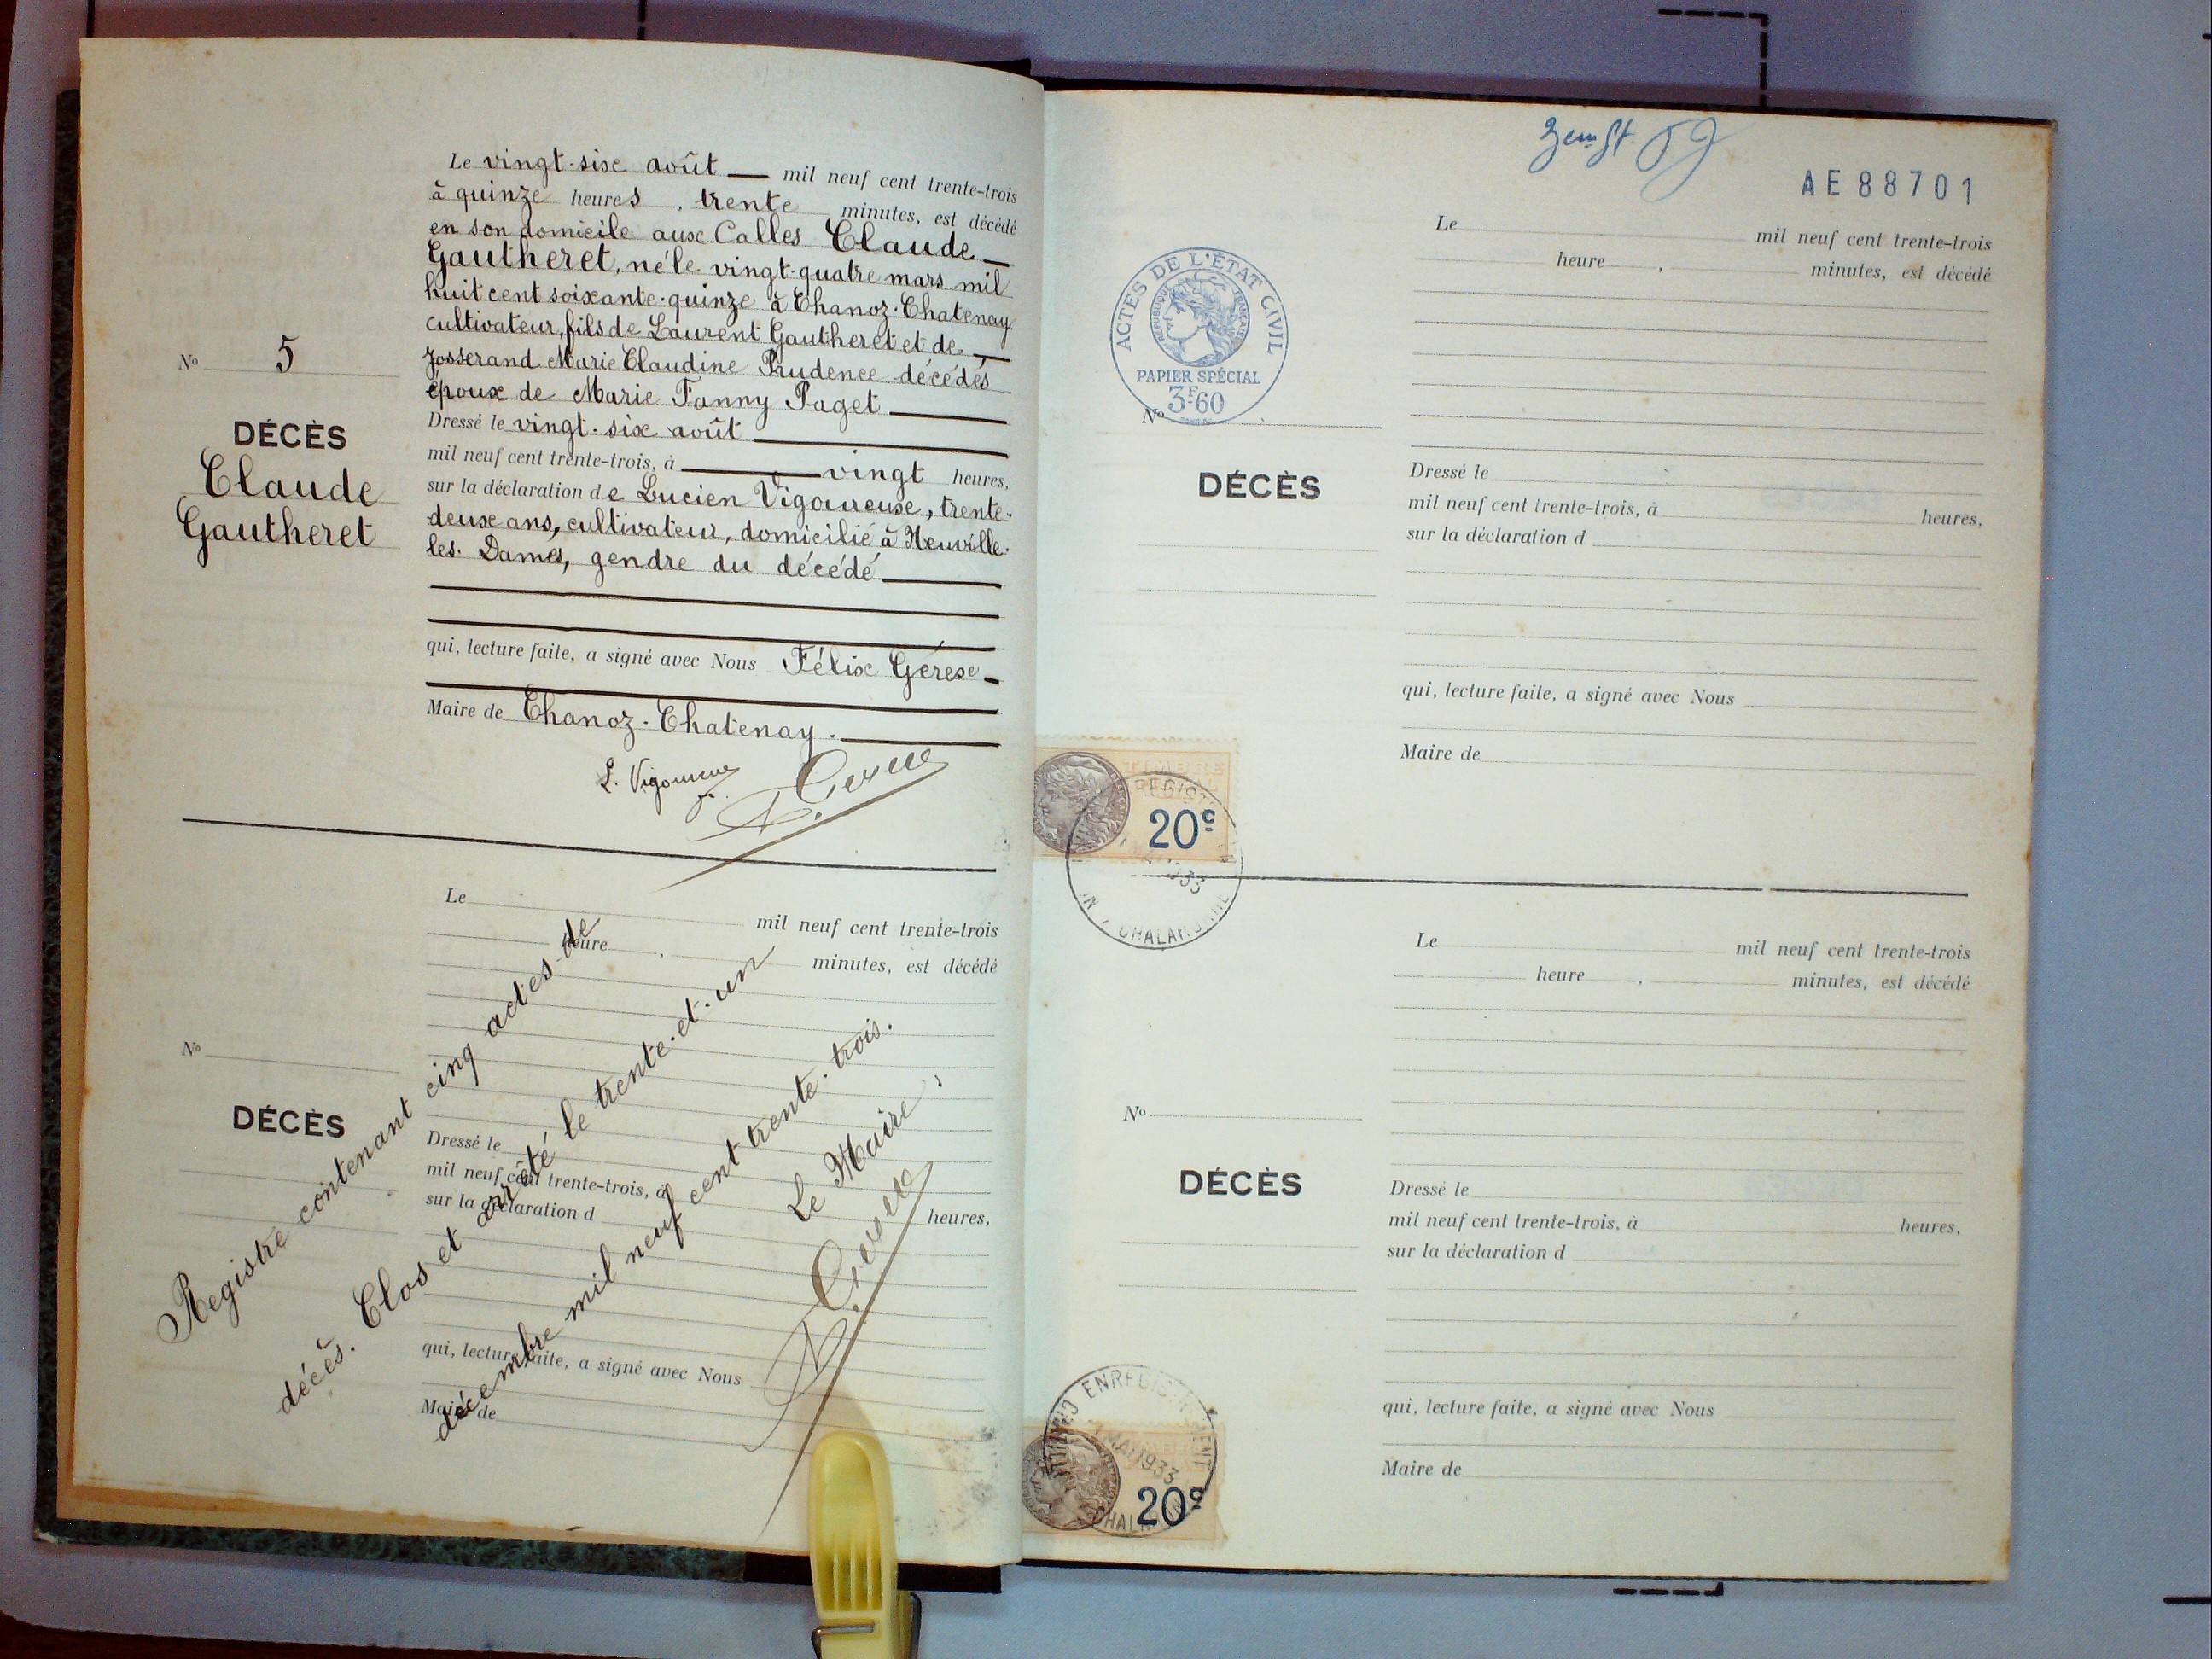 Le vingt-six août mil neuf cent trente-trois
à quinze heures, trente minutes, est décédé
en son domicile aux Calles Claude
Gautheret, né le vingt-quatre mars mil
huit cent soixante-quinze à Chanoz-Chatenay
cultivateur, fils de Laurent Gautheret et de
Josserand Marie Claudine Prudence décédés
époux de Marie Fanny Paget
Dressé le vingt-six août
mil neuf cent trente-trois, à vingt heures,
sur la déclaration de Lucien Vigoureux, trente-
deux ans, cultivateur, domicilié à Neuville-
les-Dames, gendre du décédé
qui, lecture faite, a signé avec Nous Félix Gérese
Maire de Chanoz-Chatenay.
L. Vigoureux
No 5
DÉCÈS
Claude
Gautheret
Le mil neuf cent trente-trois
heure , minutes, est décédé
No
DÉCÈS
Dressé le
mil neuf cent trente-trois, à heures,
sur la déclaration d
qui, lecture faite, a signé avec Nous
Maire de
Registre contenant cinq actes de
décès. Clos et arrêté le trente-et-un
décembre mil neuf cent trente-trois.
Le Maire,
AE 88701
ACTES DE L'ÉTAT CIVIL
RÉPUBLIQUE FRANÇAISE
PAPIER SPÉCIAL
3F60
Le mil neuf cent trente-trois
heure , minutes, est décédé
No
DÉCÈS
Dressé le
mil neuf cent trente-trois, à heures,
sur la déclaration d
qui, lecture faite, a signé avec Nous
Maire de
TIMBRE
20c
Le mil neuf cent trente-trois
heure , minutes, est décédé
No
DÉCÈS
Dressé le
mil neuf cent trente-trois, à heures,
sur la déclaration d
qui, lecture faite, a signé avec Nous
Maire de
MAI 1933
20c